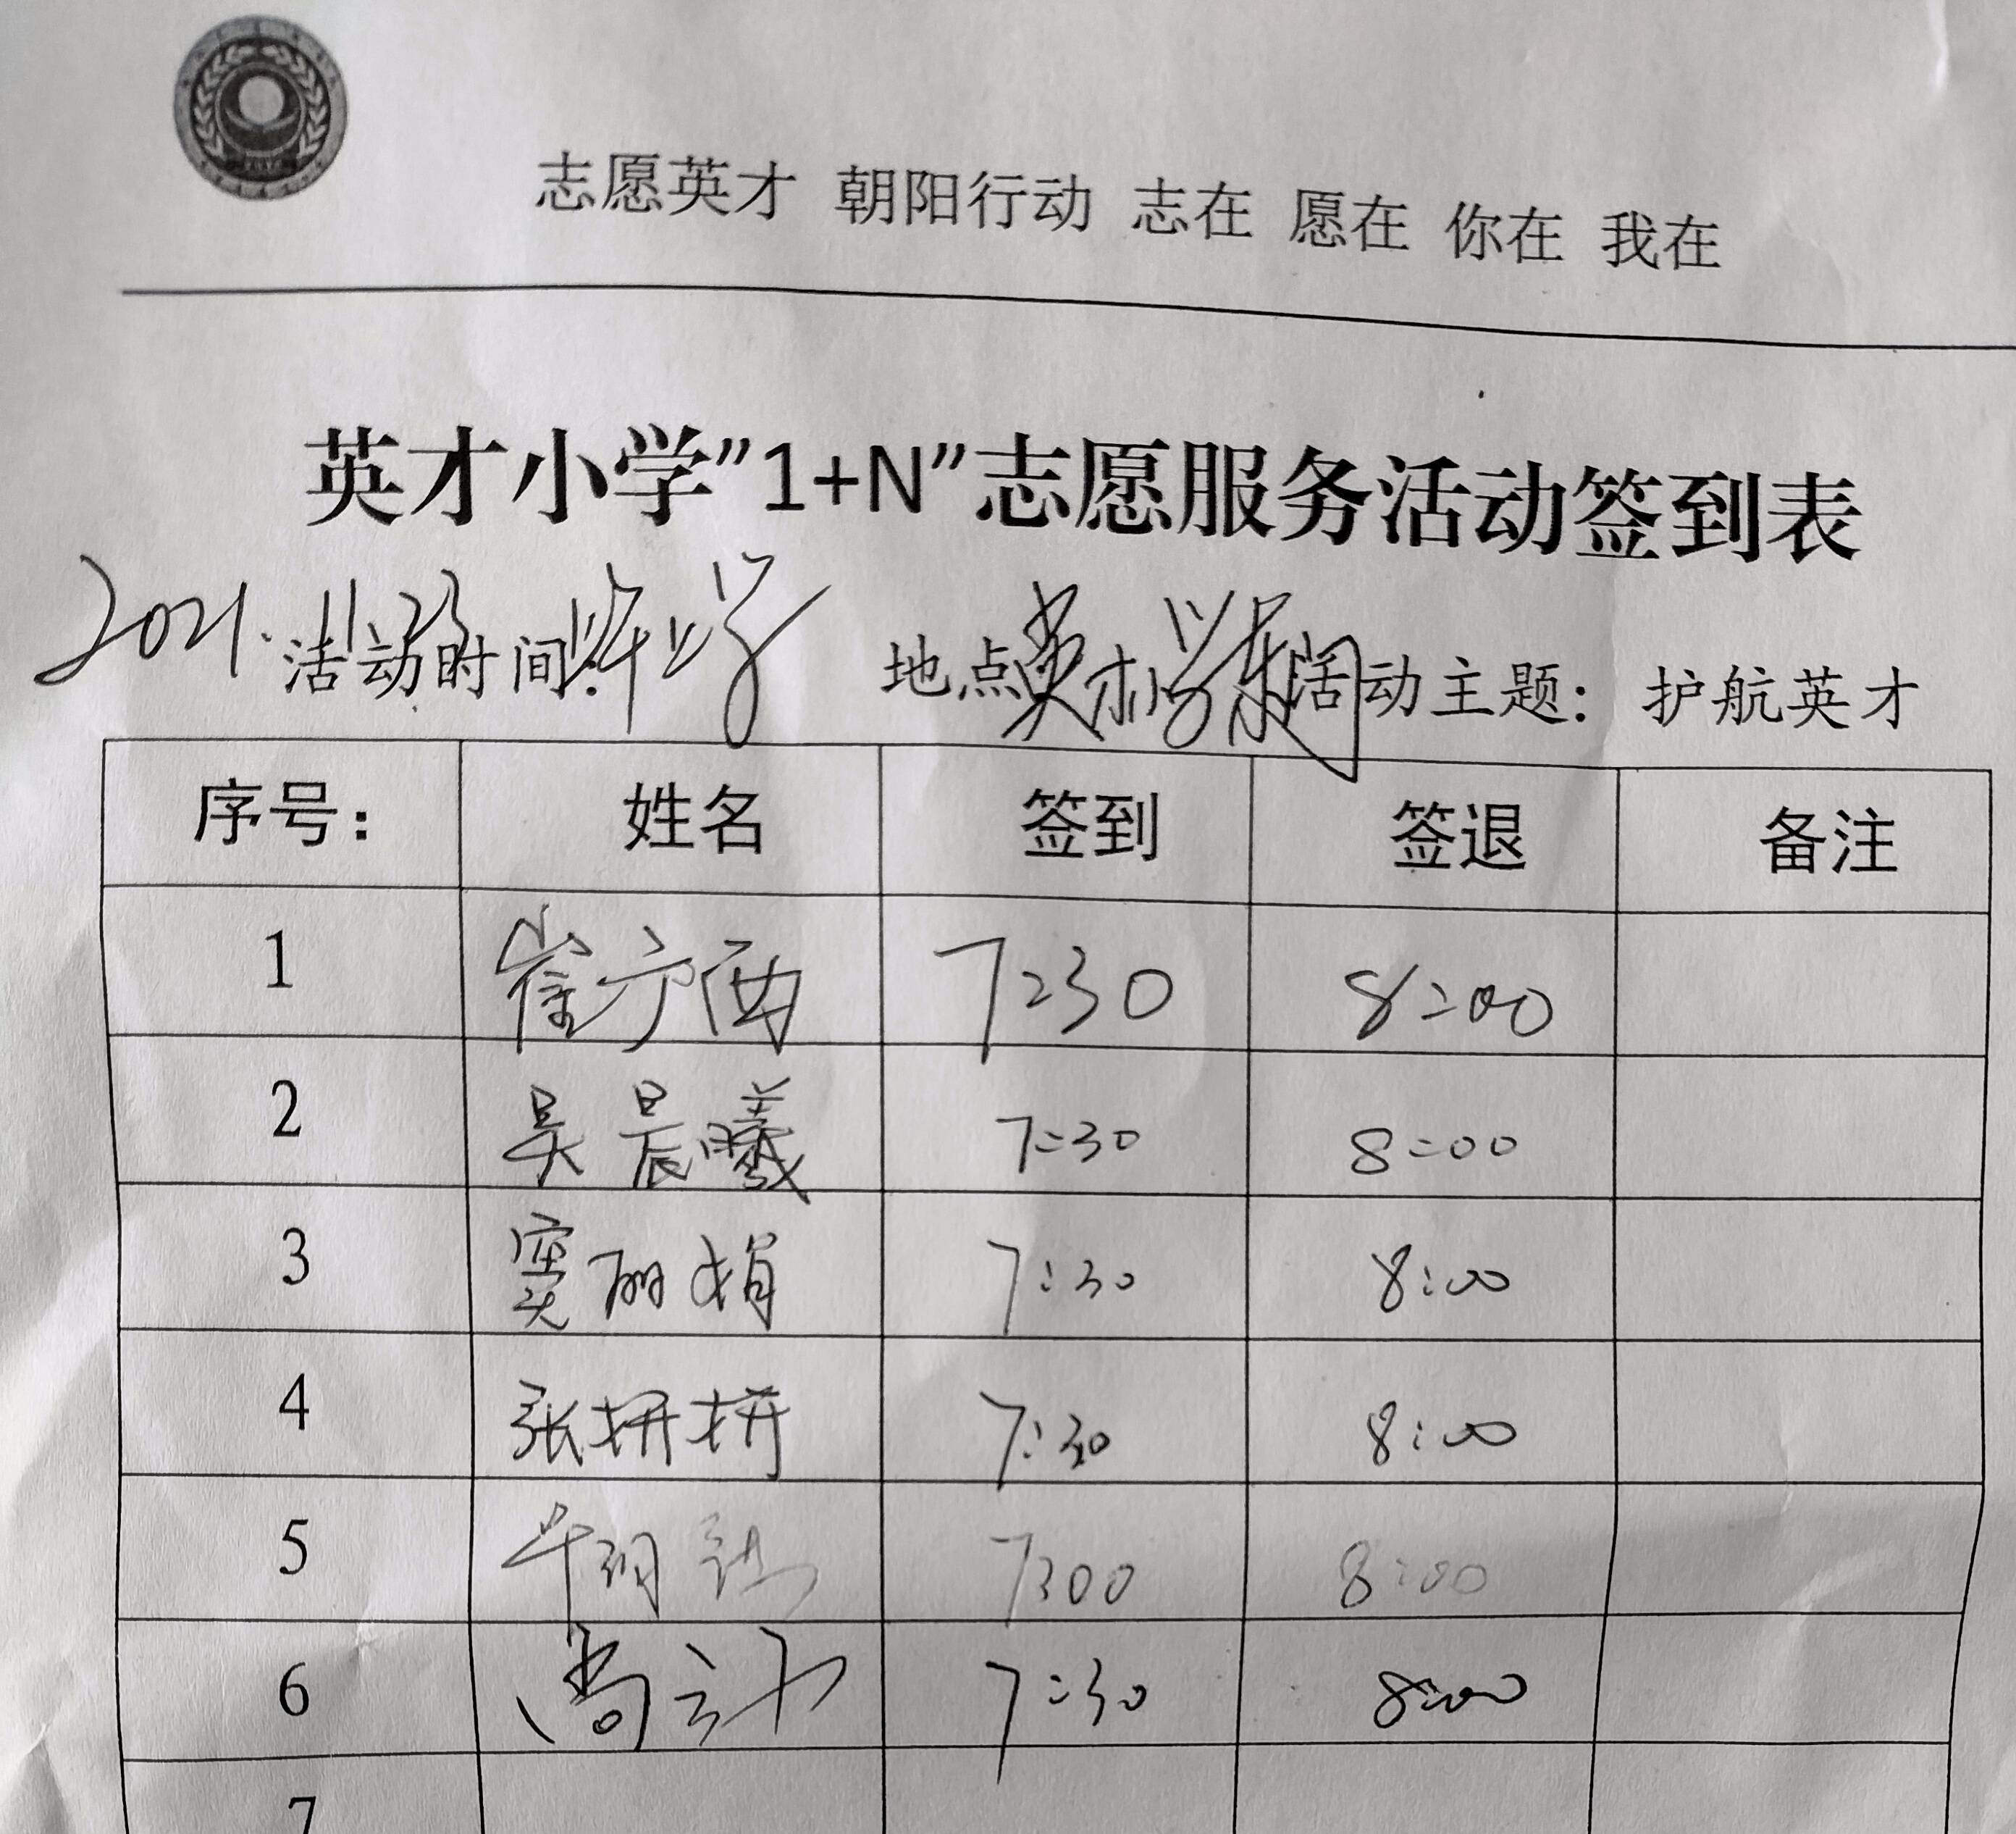 志愿英才 朝阳行动 志在 愿在 你在 我在
英才小学”1+N”志愿服务活动签到表
2021.11.23 活动时间: 上学 地点 英才小学东门 活动主题: 护航英才
序号: 姓名 签到 签退 备注
1 崔宁西 7:30 8:00
2 吴晨曦 7:30 8:00
3 窦丽娟 7:30 8:00
4 张妍妍 7:30 8:00
5 7:00 8:00
6 7:30 8:00
7